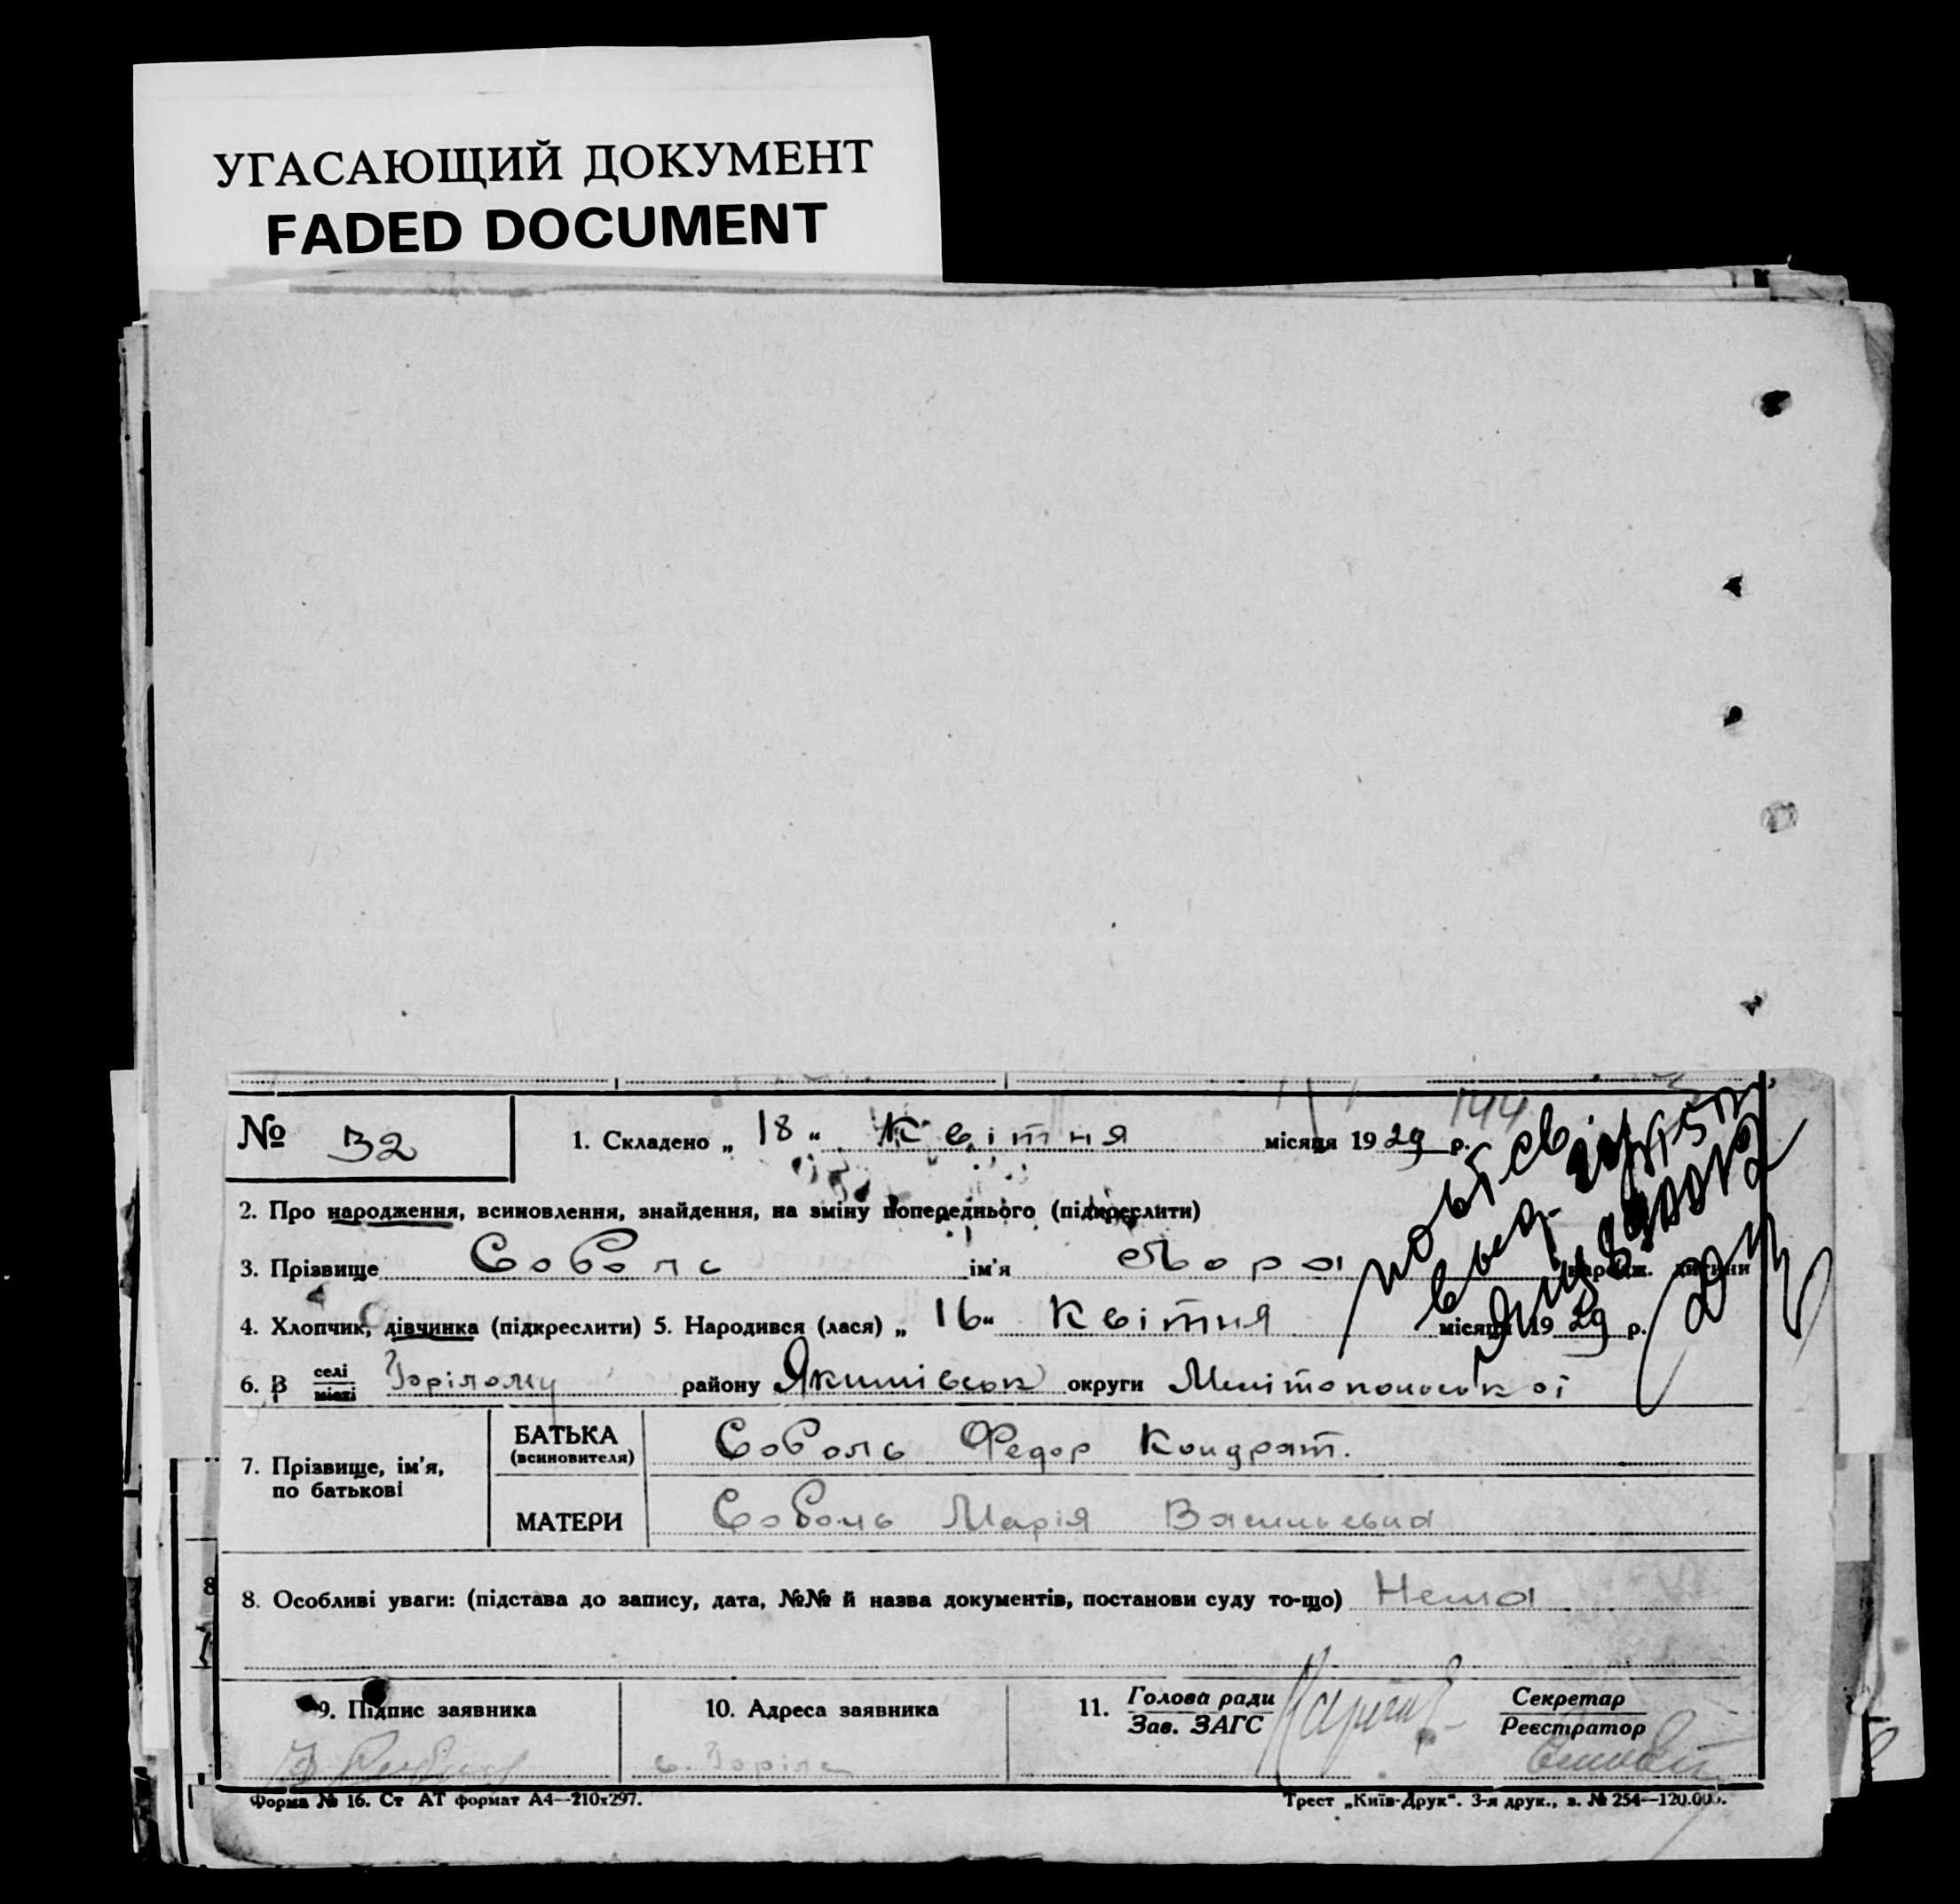 УГАСАЮЩИЙ ДОКУМЕНТ
FADED DOCUMENT
№ 32
1. Складено „ 18 “ Квітня місяця 1929 р.
144
2. Про народження, всиновлення, знайдення, на зміну попереднього (підкреслити)
3. Прізвище Соболь ім'я народж. дитини
4. Хлопчик, дівчинка (підкреслити) 5. Народився (лася) „ 16 “ Квітня місяця 1929 р.
6. В селі
місті району Якимівськ округи Мелітопольської
7. Прізвище, ім'я,
по батькові
БАТЬКА
(всиновителя)
Соболь Федор Кондрат.
МАТЕРИ
Соболь Марія Васильевна
8. Особливі уваги: (підстава до запису, дата, №№ й назва документів, постанови суду то-що) Нема
9. Підпис заявника
10. Адреса заявника
11. Голова ради
Зав. ЗАГС
Секретар
Реєстратор
Форма № 16. Ст АТ формат А4—210х297.
Трест „Київ-Друк“. 3-я друк., з. № 254—120.000.